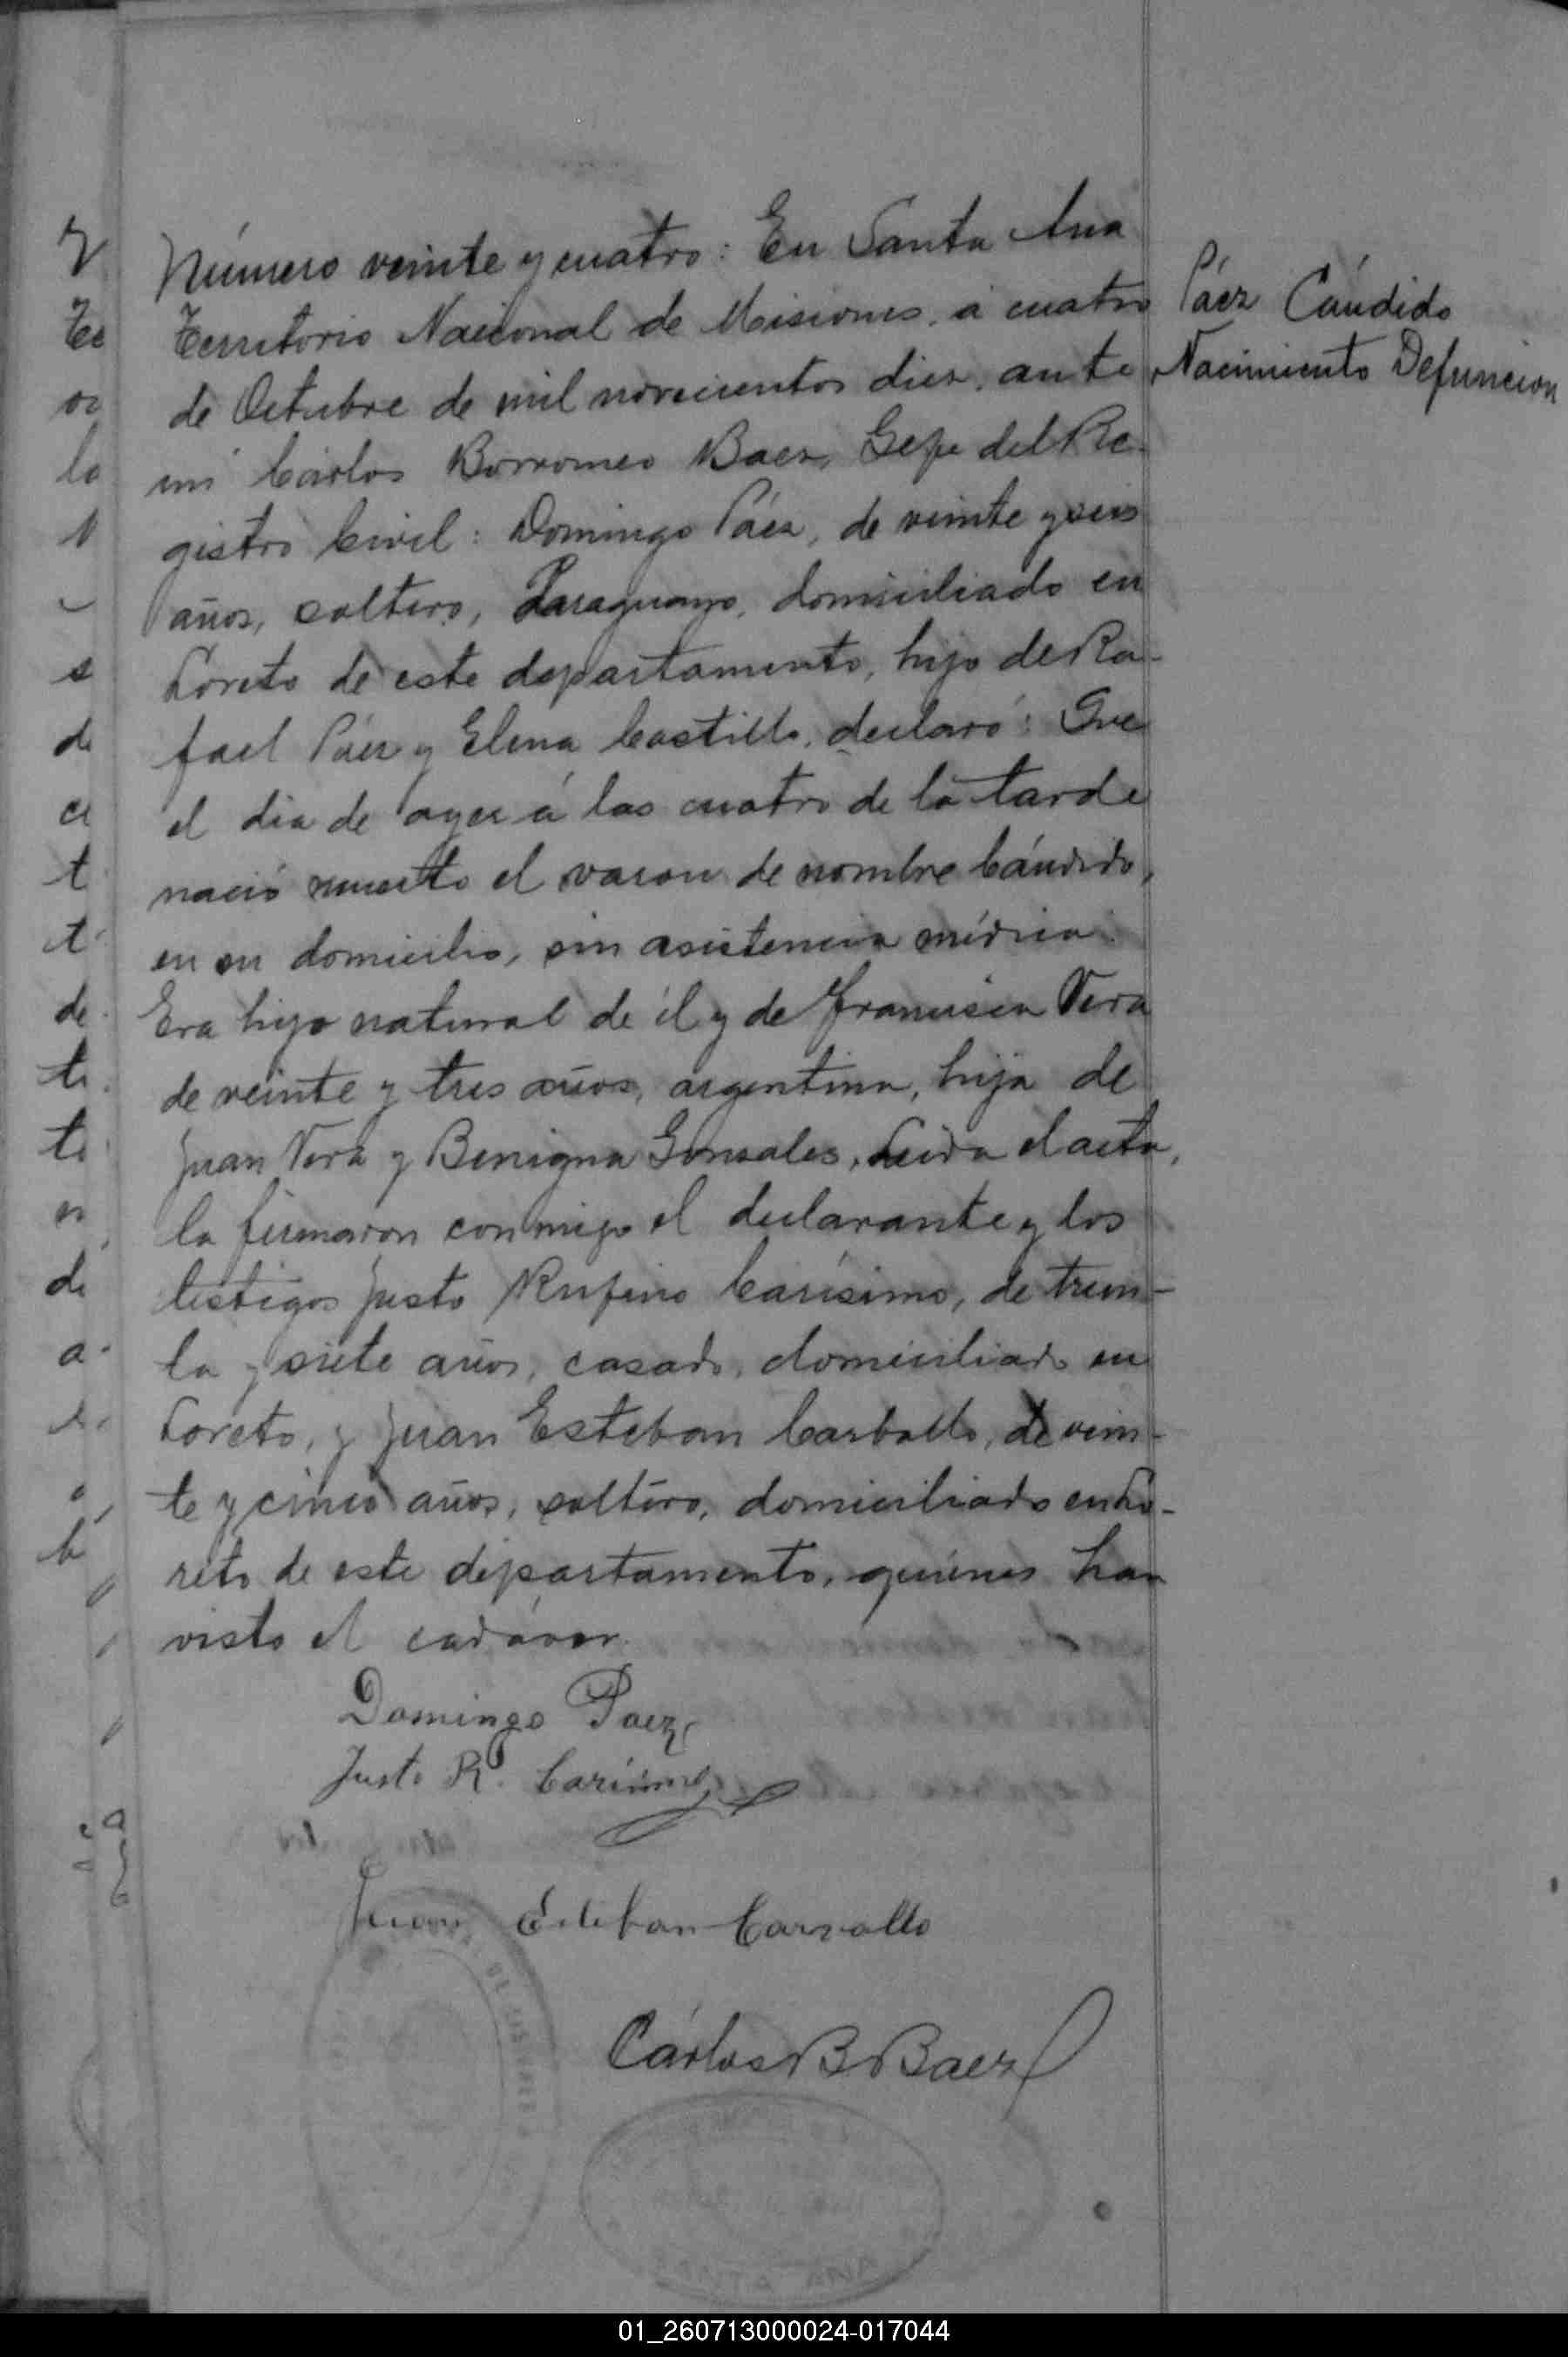 Número veinte y cuatro: En Santa Ana
Territorio Nacional de Misiones, a cuatro
de Octubre de mil novecientos diez, ante
mi Cárlos Borromeo Baez, Gefe del Re-
gistro Civil: Domingo Páez, de veinte y seis
años, soltero, Paraguayo, domiciliado en
Loreto de este departamento, hijo de Ra-
fael Páez y Elena Castillo, declaró: Que
el dia de ayer á las cuatro de la tarde
nació muerto el varon de nombre Cándido,
en su domicilio, sin asistencia médica.
Era hijo natural de él y de Francisca Vera
de veinte y tres años, argentina, hija de
Juan Vera y Benigna Gonzales, Leida el acta,
la firmaron conmigo el declarante y los
testigos Justo Rufino Carísimo, de trein-
ta y siete años, casado, domiciliado en
Loreto, y Juan Esteban Carballo, de vein-
te y cinco años, soltero, domiciliado en Lo-
reto de este departamento, quienes han
visto el cadáver.
Domingo Paez
Justo R. Carísimo
Juan Esteban Carvallo
Cárlos B Baez
SANTA ANA
Páez Cándido
Nacimiento Defuncion
01_260713000024-017044